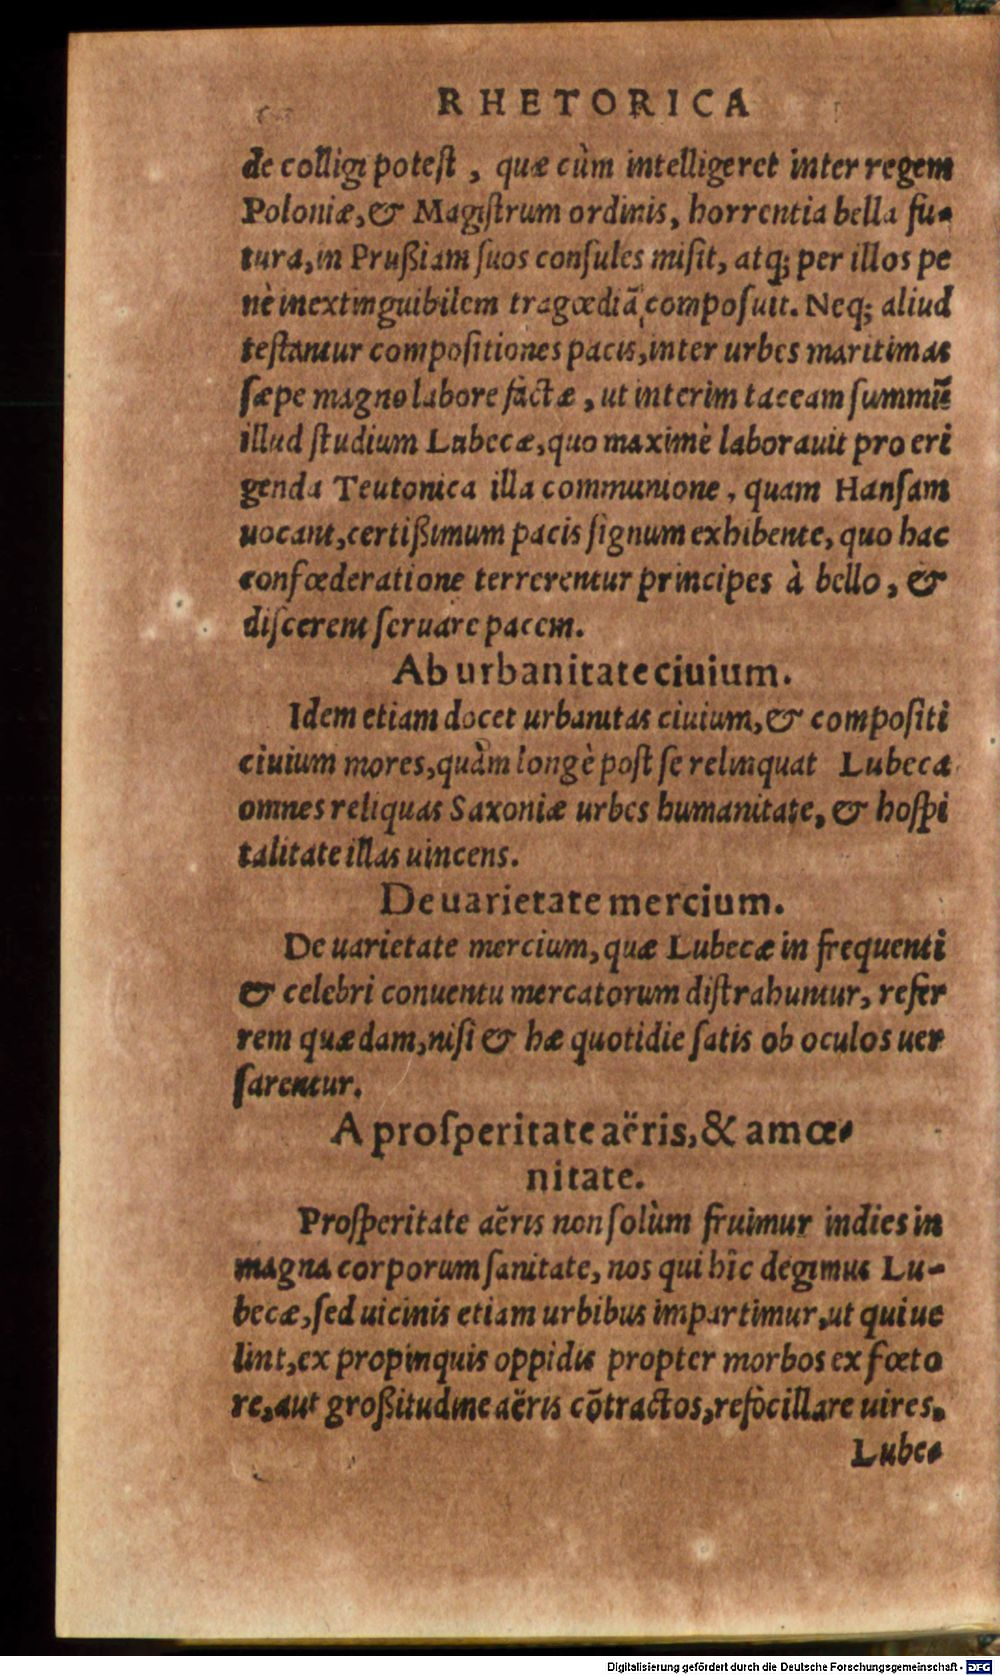 RHETORICA
de colligi potest, quæ cùm intelligeret inter regem
Poloniæ, & Magiſtrum ordinis, horrentia bella fu-
tura, in Prußiam ſuos conſules miſit, atq; per illos pe
nè inextinguibilem tragœdiã compoſuit. Neq; aliud
teſtantur compoſitiones pacis, inter urbes maritimas
ſæpe magno labore factæ, ut interim taceam ſummũ
illud ſtudium Lubecæ, quo maximè laborauit pro eri
genda Teutonica illa communione, quam Hanſam
uocant, certißimum pacis ſignum exhibente, quo hac
confœderatione terrerentur principes à bello, &
diſcerent ſeruare pacem.
Ab urbanitate ciuium.
Idem etiam docet urbanitas ciuium, & compoſiti
ciuium mores, quàm longè poſt ſe relinquat Lubeca
omnes reliquas Saxoniæ urbes humanitate, & hoſpi
talitate illas uincens.
De uarietate mercium.
De uarietate mercium, quæ Lubecæ in frequenti
& celebri conuentu mercatorum diſtrahuntur, refer
rem quædam, niſi & hæ quotidie ſatis ob oculos uer
ſarentur.
A proſperitate aëris, & amœ-
nitate.
Proſperitate aëris non ſolùm fruimur indies in
magna corporum ſanitate, nos qui hîc degimus Lu-
becæ, ſed uicinis etiam urbibus impartimur, ut qui ue
lint, ex propinquis oppidis propter morbos ex fœto
re, aut großitudine aëris cõtractos, refocillare uires.
Lube-
Digitalisierung gefördert durch die Deutsche Forschungsgemeinschaft - DFG